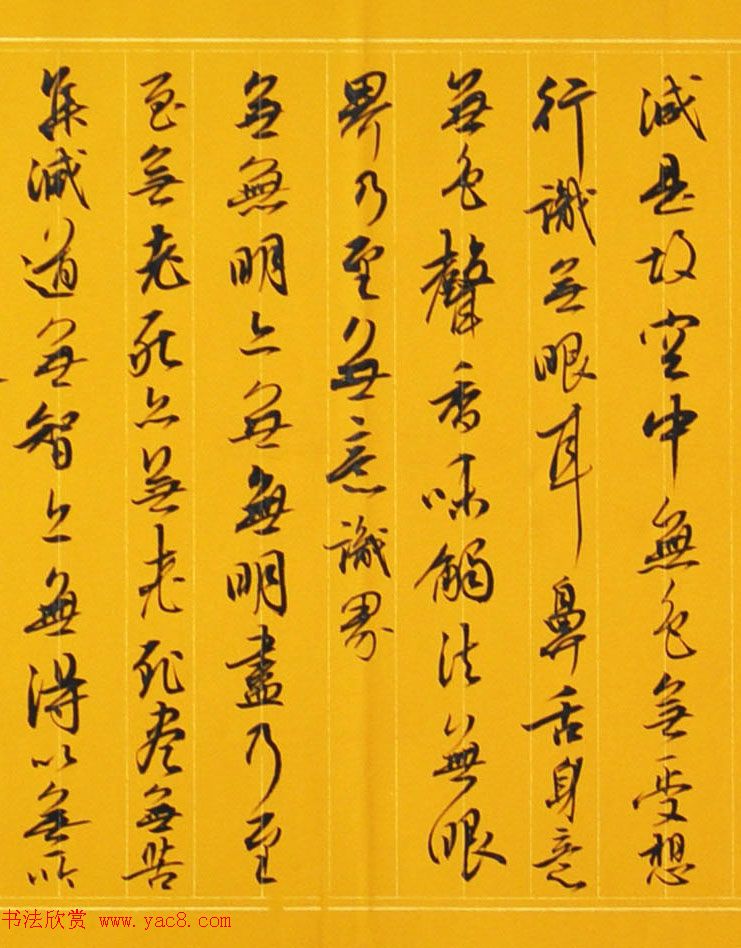 減是故空中無色無受想
行識無眼耳鼻舌身意
無色聲香味觸法無眼
界乃至無意識界
無無明亦無無明盡乃至
至無老死亦無老死盡無苦
集滅道無智亦無得以無所
书法欣赏 www.yac8.com